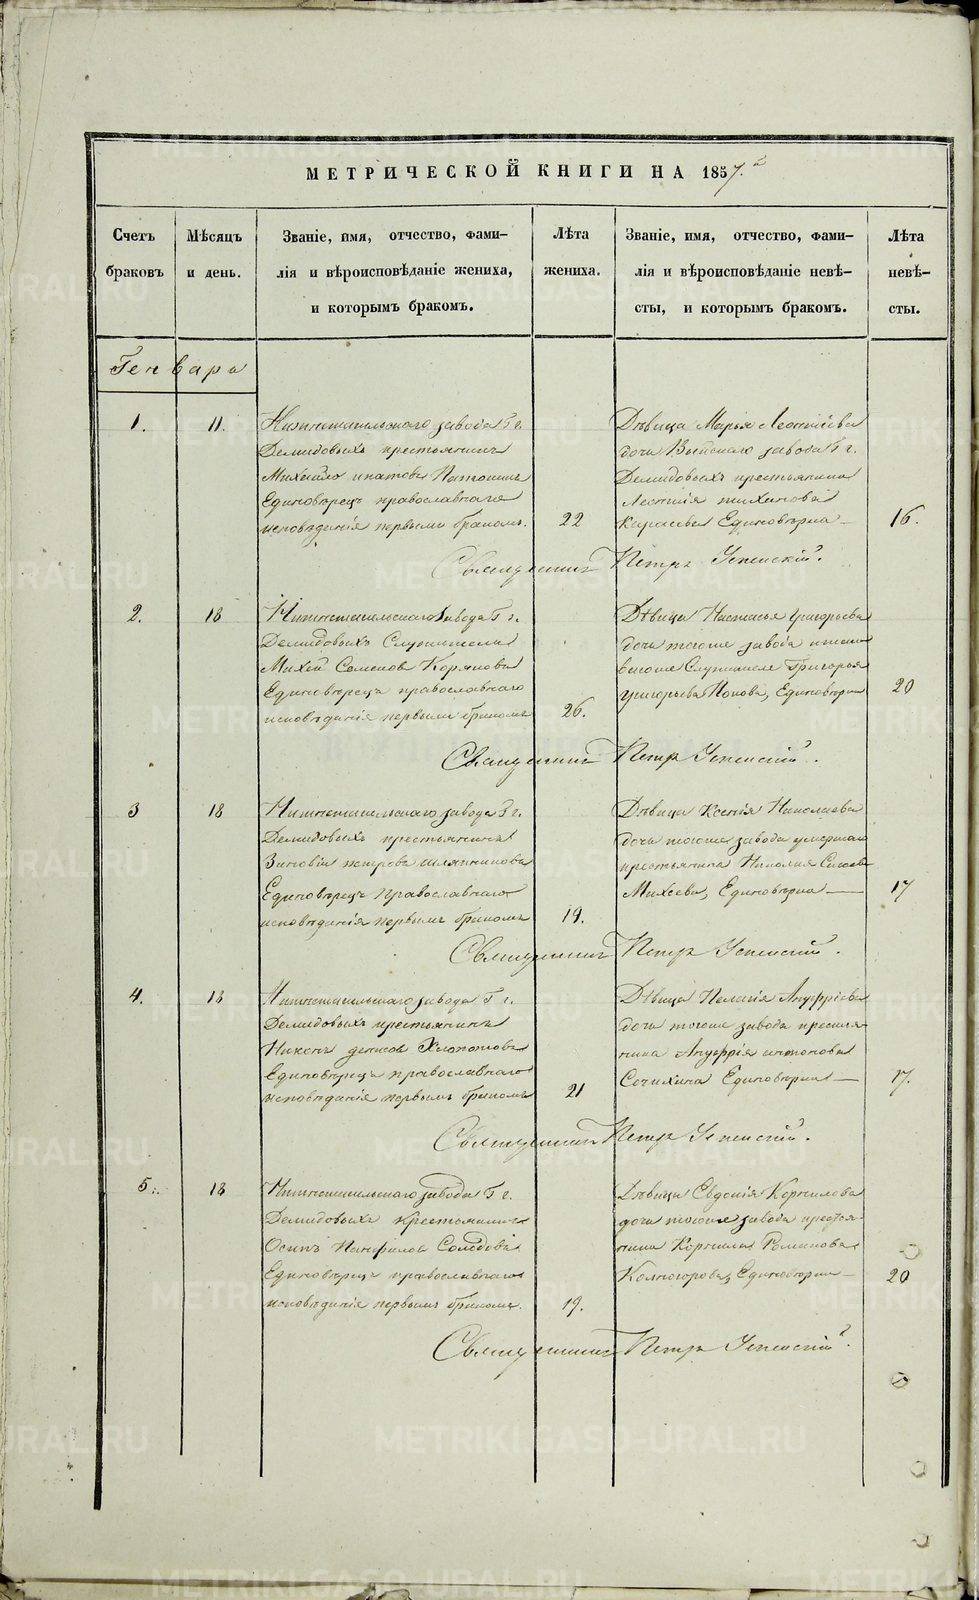 МЕТРИЧЕСКОЙ КНИГИ НА 1857.
Счетъ браковъ
Мѣсяцъ и день.
Званіе, имя, отчество, фами-
лія и вѣроисповѣданіе жениха,
и которымъ бракомъ.
Лѣта жениха.
Званіе, имя, отчество, фами-
лія и вѣроисповѣданіе невѣ-
сты, и которымъ бракомъ.
Лѣта невѣ-
сты.
Генваря
1.
11.
Нижнетагильскаго завода Гг.
Демидовыхъ крестьянинъ
Михайло Ипатовъ
Единовѣрецъ православнаго
исповѣданія первымъ бракомъ.
22
Дѣвица Марья Леонтіева
дочь Выйскаго завода Гг.
Демидовыхъ крестьянина
Леонтія
Единовѣрка
16.
Священникъ Петръ Успенскій.
2.
18
Нижнетагильскаго завода Гг.
Демидовыхъ Служитель
Михей Семенов
Единовѣрецъ православнаго
исповѣданія первымъ бракомъ
26.
Дѣвица Настасья Григорьева
дочь тогоже завода
Служителя Григорья
Григорьева Попова, Единовѣрка
20
Священникъ Петръ Успенскій.
3
18
Нижнетагильскаго завода Гг.
Демидовыхъ крестьянинъ
Зиновій петровъ шляпниковъ
Единовѣрецъ Православнаго
исповѣданія первымъ бракомъ
19.
Дѣвица Ксенія Николаева
дочь тогоже завода умершаго
крестьянина Николая
Михеева, Единовѣрка
17
Священникъ Петръ Успенскій.
4.
18
Нижнетагильскаго завода Гг.
Демидовыхъ крестьянинъ
Никонъ денисов Хлопотовъ
Единовѣрецъ православнаго
исповѣданія первымъ бракомъ
21
Дѣвица Пелагія Ануфріева
дочь тогоже завода крестья-
нина Ануфрія антонова
Сочихина Единовѣрка
17.
Священникъ Петръ Успенскій.
5.
18
Нижнетагильскаго завода Гг.
Демидовыхъ крестьянинъ
Осипъ Панфилов Солодовъ
Единовѣрецъ православнаго
исповѣданія первымъ бракомъ.
19.
Дѣвица Евдокія Корнилова
дочь тогоже завода крестья-
нина Корнила Романова
Колногорова, Единовѣрка
20
Священникъ Петръ Успенскій.
METRIKI.GASO-URAL.RU